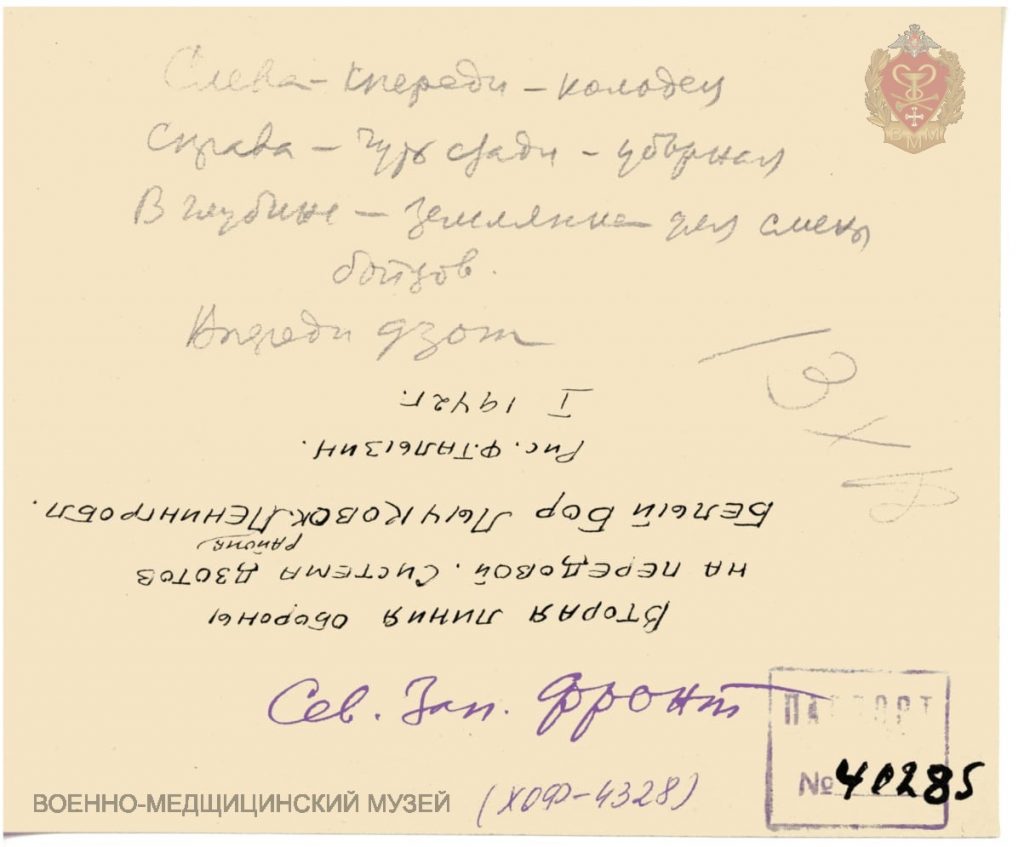 Слева – впереди – колодец
Справа – чуть сзади – уборная
В глубине – землянка для смены
бойцов.
Впереди дзот
Вторая линия обороны
на передовой. Система дзотов
Белый Бор Лычковск. района Ленингр обл.
Рис. Ф. Талызин.
I 1942 г.
Сев. Зап. фронт
ПАСПОРТ
№ 40285
(ХОФ-4328)
ВОЕННО-МЕДЩИЦИНСКИЙ МУЗЕЙ
ВММ